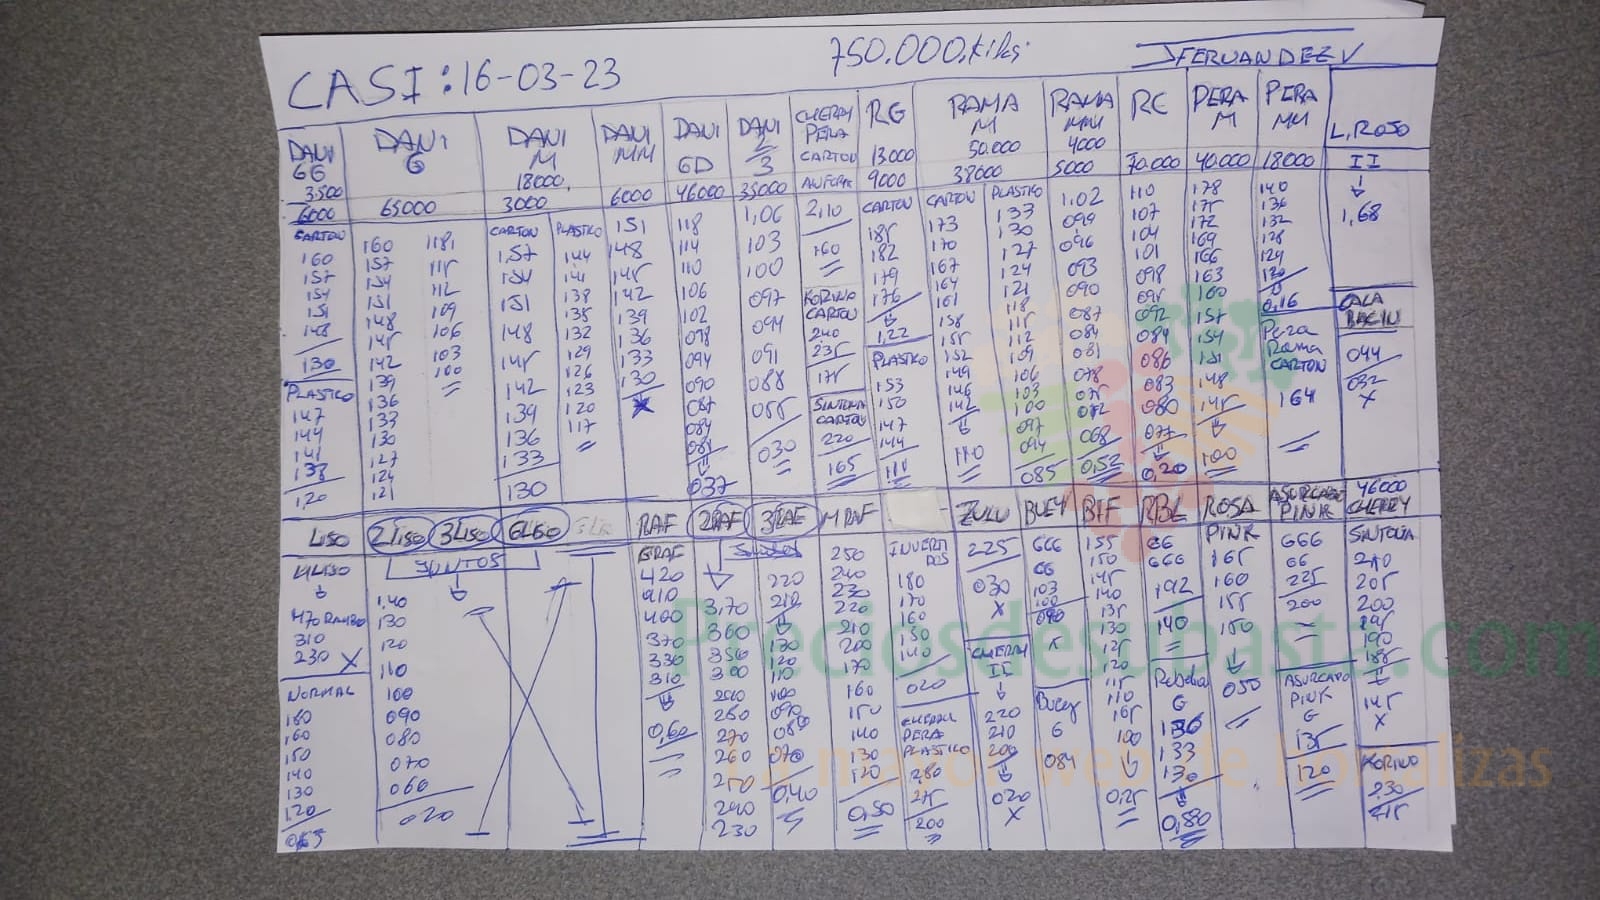 CASI: 16-03-23
750.000 kilos
JFERNANDEZV
DANI GG
3500
6000
CARTON
160
157
154
151
148
130
PLASTICO
147
144
141
138
1,20
DANI G
65000
160
157
154
151
148
145
142
139
136
133
130
127
124
121
118
115
112
109
106
103
100
DANI M
18000
3000
CARTON
1,57
154
151
148
145
142
139
136
133
130
PLASTICO
144
141
138
135
132
129
126
123
120
117
DANI MM
6000
151
148
145
142
139
136
133
130
DANI GD
46000
118
114
110
106
102
098
094
090
087
084
081
037
DANI 2/3
35000
1,06
103
100
097
094
091
088
085
030
CHERRY
PERA
CARTON
2,10
160
KORINO
CARTON
240
235
175
SINTONIA
CARTON
220
165
RG
13000
9000
CARTON
185
182
179
176
1,22
PLASTICO
153
150
147
144
110
RAMA M
50.000
38000
CARTON
173
170
167
164
161
158
155
152
149
146
142
110
PLASTICO
133
130
127
124
121
118
115
112
109
106
103
100
097
094
085
RAMA MM
4000
5000
1.02
099
096
093
090
087
084
081
078
075
072
068
0,52
RC
70.000
110
107
104
101
098
095
092
089
086
083
080
077
0,20
PERA M
40.000
178
175
172
169
166
163
160
157
154
151
148
145
100
PERA MM
18000
140
136
132
128
124
120
0,16
Pera
Rama
CARTON
164
L.ROJO
II
1,68
CALA
BACIN
044
032
X
LISO
4LISO
470 RAMBO
310
230 X
NORMAL
180
160
150
140
130
120
2LISO
3LISO
6LISO
JUNTOS
1.40
130
120
110
100
090
080
070
060
020
RAF
GRAF
420
410
400
370
330
310
0,60
2RAF
3,70
360
350
300
290
280
270
260
250
240
230
3RAF
220
210
130
120
110
100
090
080
070
0,40
MRAF
250
240
230
220
210
200
170
160
150
140
130
120
0,50
180
170
160
150
140
020
CHERRY
PERA
PLASTICO
280
275
200
ZULU
225
030
X
CHERRY
II
220
210
200
020
X
BUEY
GGG
GG
103
100
090
X
Buey
G
084
BIF
155
150
145
140
135
130
125
120
115
110
105
100
0,25
RBL
GG
GGG
142
140
Rebelion
G
136
133
130
0,80
ROSA
PINK
165
160
155
150
050
ASURCADO
PINK
GGG
GG
225
200
ASURCADO
PINK
G
135
120
46000
CHERRY
SINTONIA
210
205
200
195
190
185
145
X
KORINO
230
215
Preciosdesubasta.com
La mayor web de hortalizas